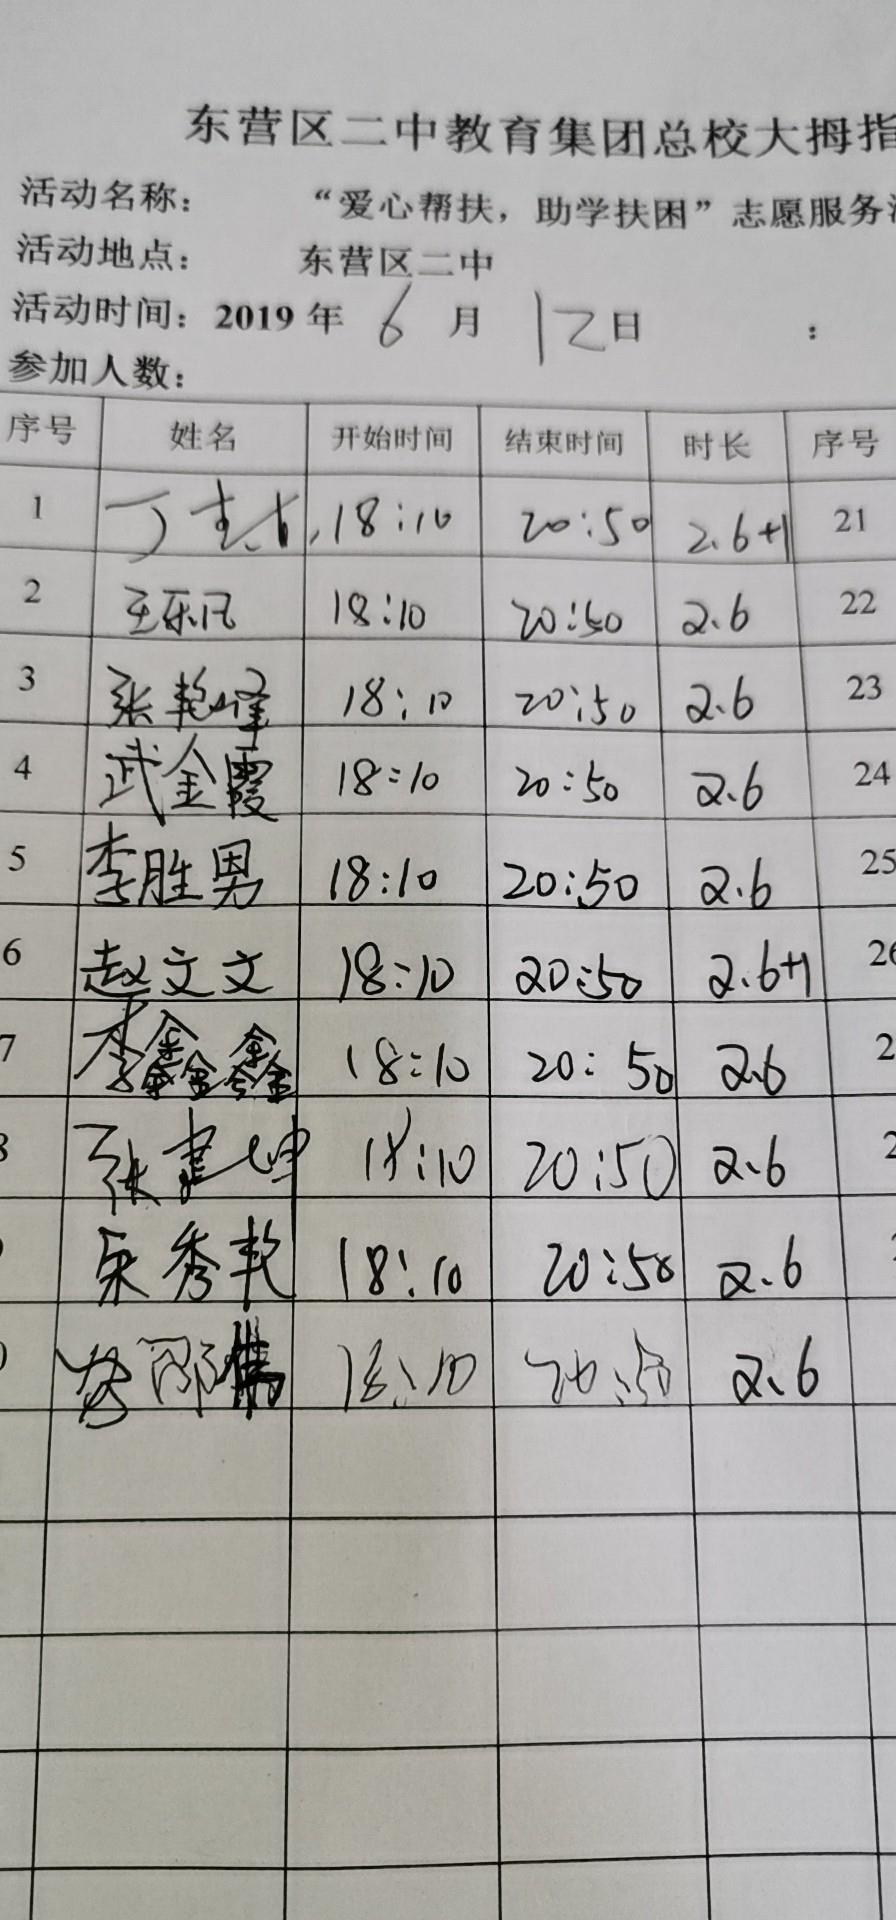 东营区二中教育集团总校大拇指
活动名称： “爱心帮扶，助学扶困”志愿服务
活动地点： 东营区二中
活动时间：2019 年 6 月 12日 ：
参加人数：
序号 姓名 开始时间 结束时间 时长 序号
1 丁 18:10 20:50 2.6+1 21
2 王乐凡 18:10 20:50 2.6 22
3 张艳峰 18:10 20:50 2.6 23
4 武金霞 18:10 20:50 2.6 24
5 李胜男 18:10 20:50 2.6 25
6 赵文文 18:10 20:50 2.6+1 26
7 李鑫鑫 18:10 20:50 2.6 2
张建坤 18:10 20:50 2.6 2
宋秀乾 18:10 20:50 2.6
18:10 20:50 2.6